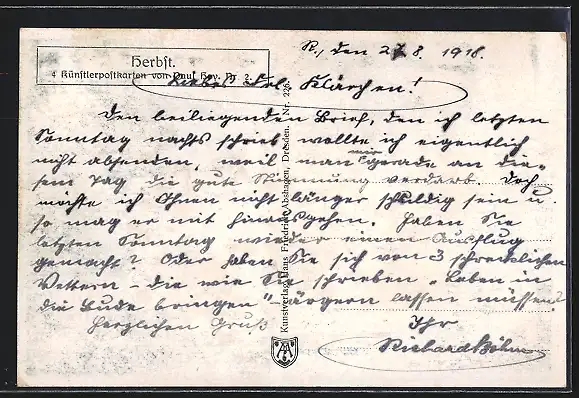 Herbst.
4 Künstlerpostkarten von Paul Hey. Nr. 2.
R., den 27. 8. 1918.
Liebes Frl. Klärchen!
Den beiliegenden Brief, den ich letzten
Sonntag nachts schrieb wollte ich eigentlich
nicht absenden, weil man mir gerade an die-
sem Tag die gute Stimmung verdarb. Doch
möchte ich Ihnen nicht länger schuldig sein u.
so mag er mit hinausgehen. Haben Sie
letzten Sonntag wieder einen Ausflug
gemacht? Oder haben Sie sich von 3 schrecklichen
Vettern - die wie Sie schrieben „Leben in
die Bude bringen" - ärgern lassen müssen?
Herzlichen Gruß
Ihr
Richard Böhm
Kunstverlag Hans Friedrich Abshagen, Dresden. Nr. 226.